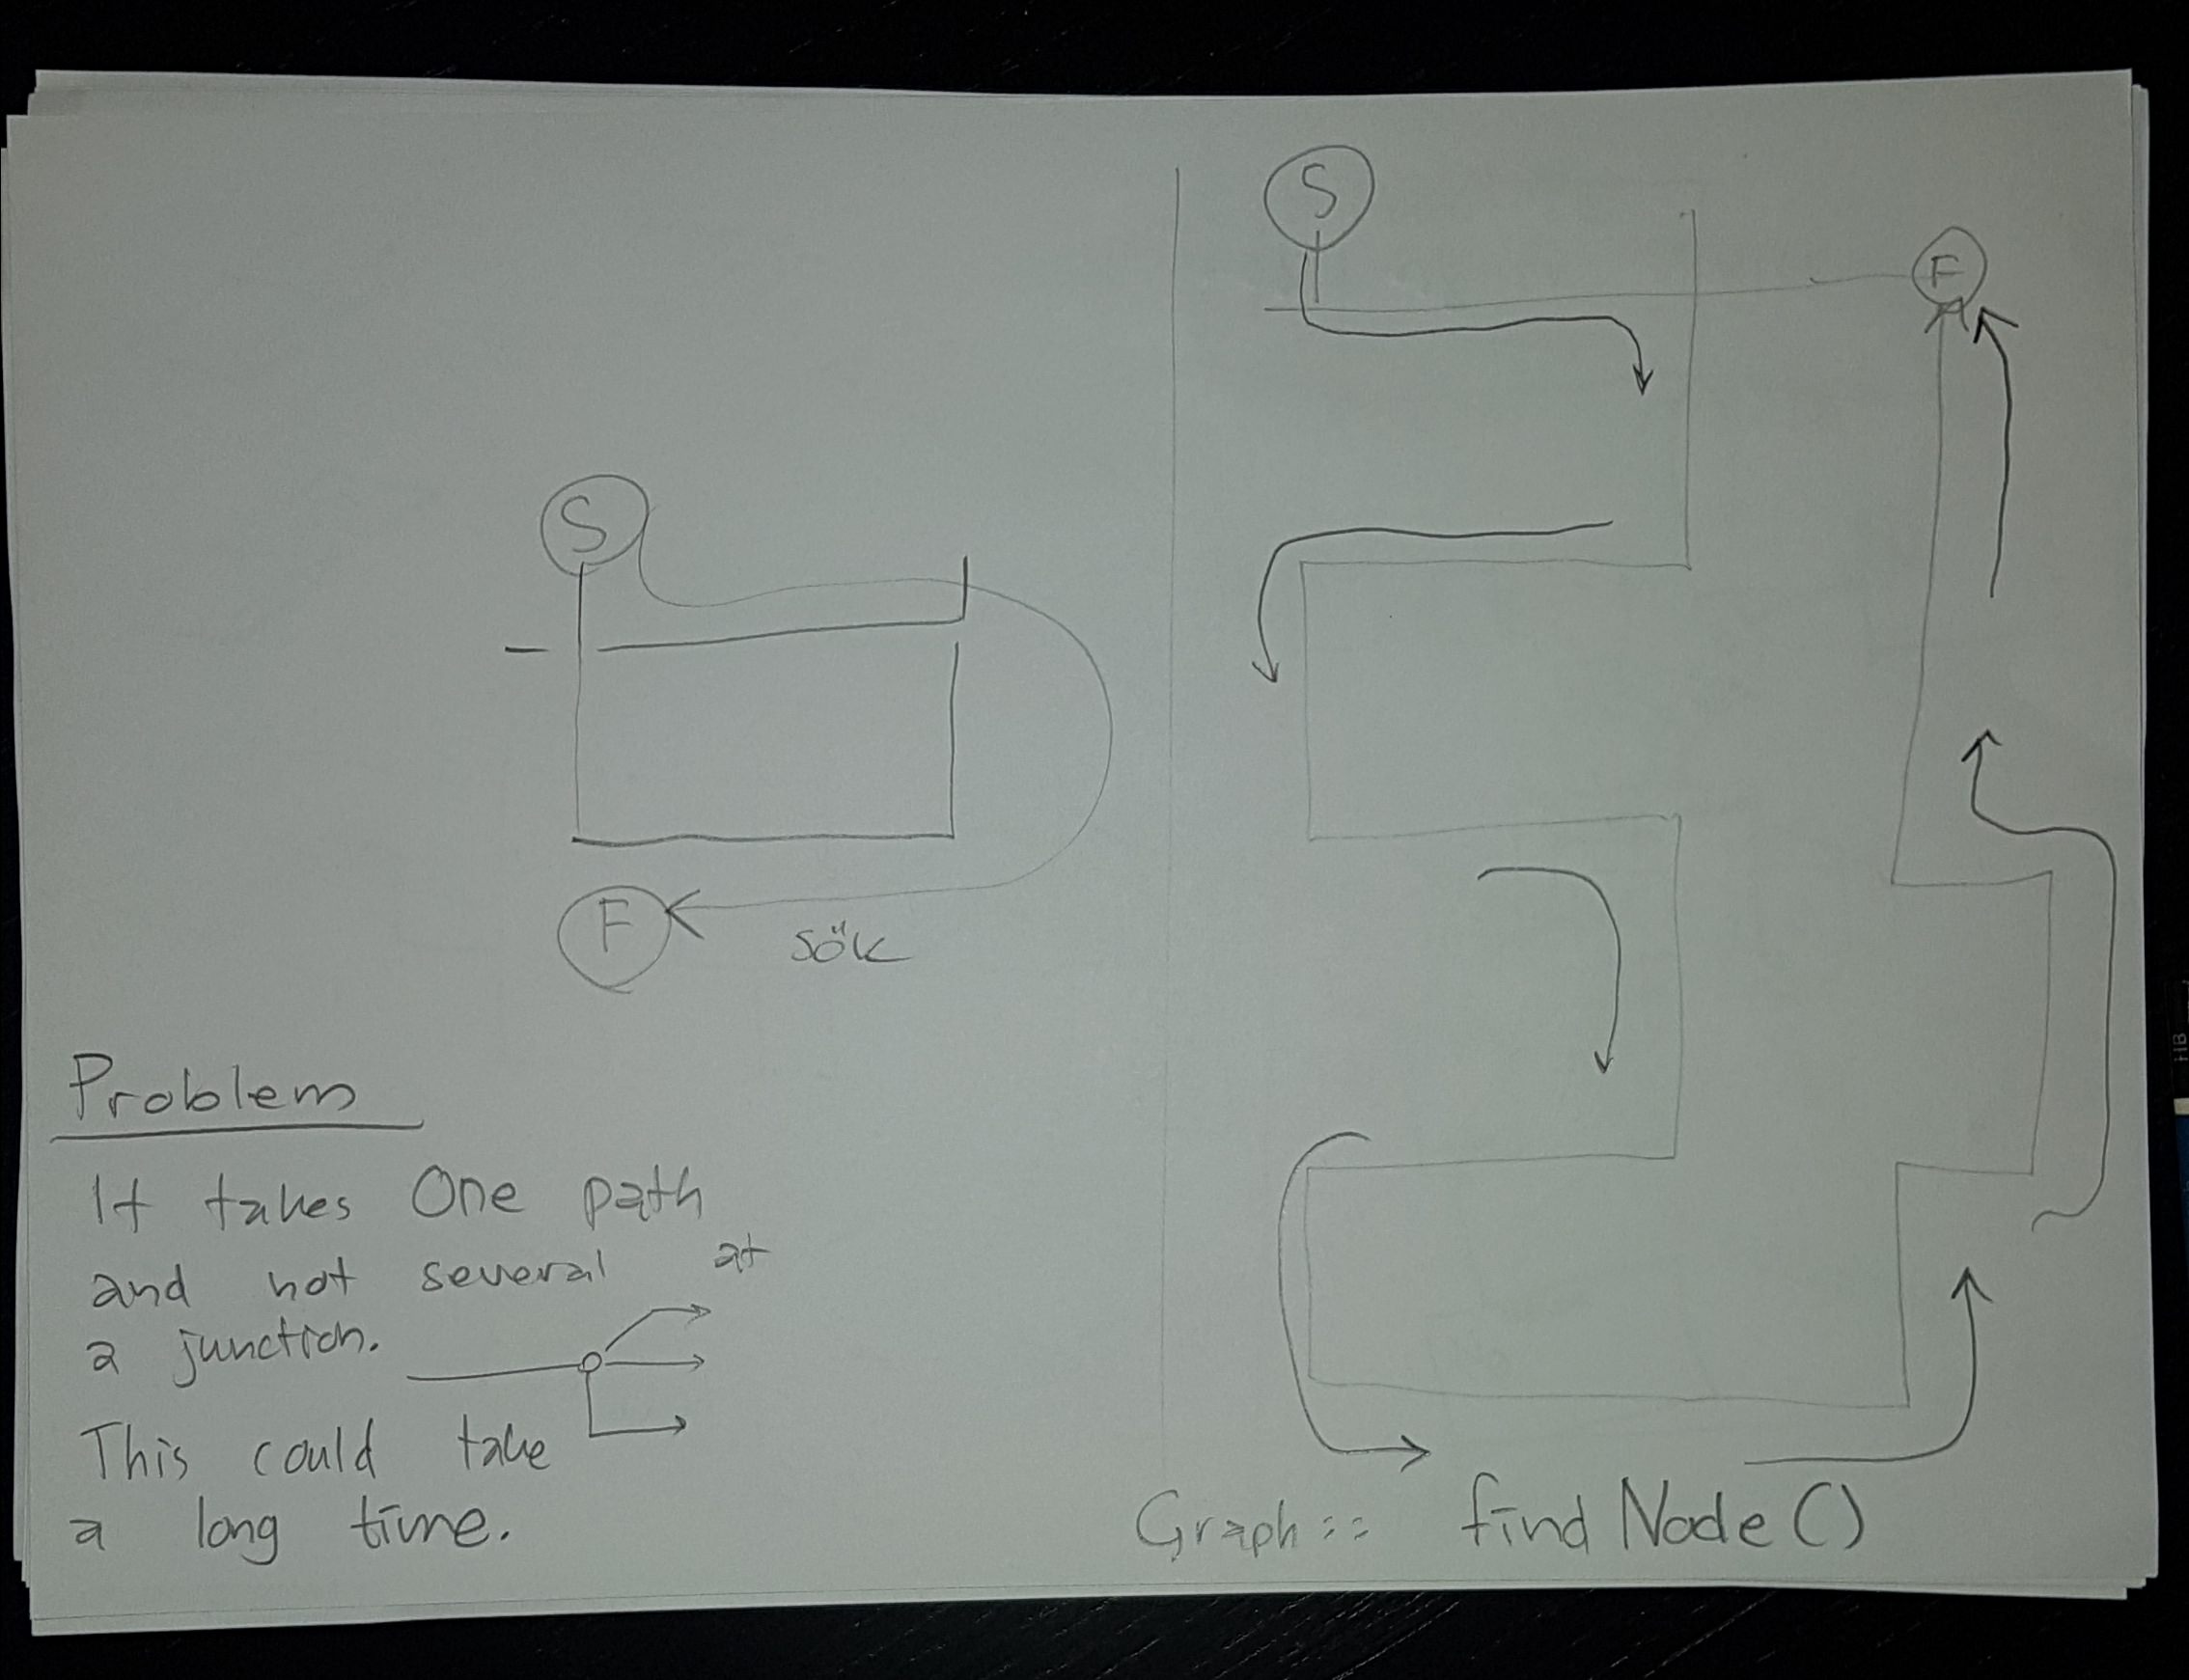 S
F
sök
Problem
It takes One path
and not several at
a junction.
This could take
a long time.
S
F
Graph:: findNode()
HB